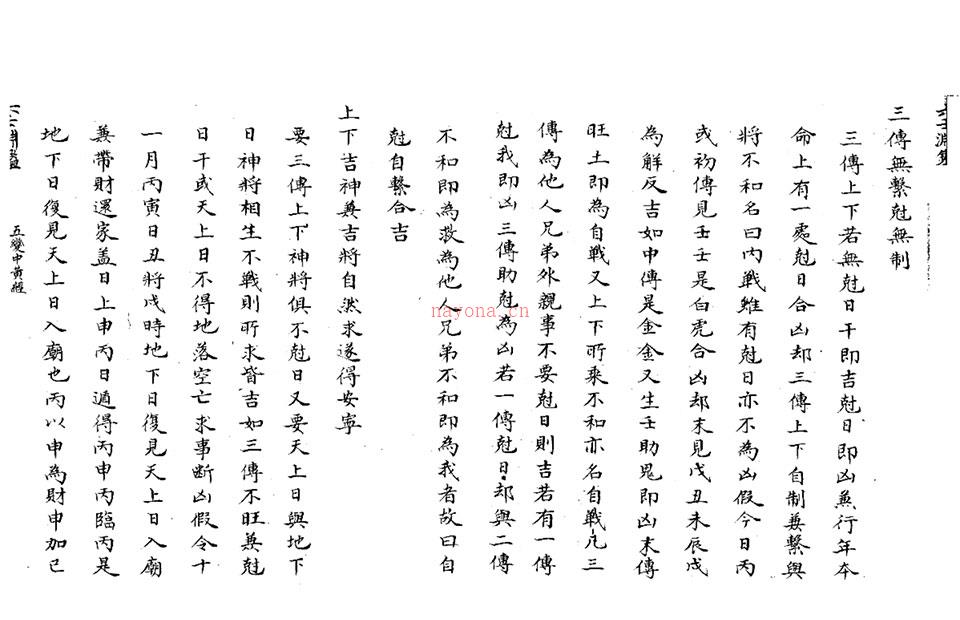 三傳無繫尅無制
三傳上下若無尅日干即吉尅日即凶兼行年本
命上有一處尅日合凶却三傳上下自制兼繫與
將不和名曰內戰雖有尅日亦不為凶假令日丙
或初傳見壬壬是白虎合凶却末見戊丑未辰戌
為解反吉如中傳是金金又生壬助鬼即凶末傳
旺土即為自戰又上下所乘不和亦名自戰凡三
傳為他人兄弟外親事不要尅日則吉若有一傳
尅我即凶三傳助尅為凶若一傳尅日却與二傳
不和即為救為他人兄弟不和即為我者故曰自
尅自繫合吉
上下吉神兼吉將自然求遂得安寧
要三傳上下神將俱不尅日又要天上日與地下
日神將相生不戰則所求皆吉如三傳不旺兼尅
日干或天上日不得地落空亡求事斷凶假令十
一月丙寅日丑將戌時地下日復見天上日入廟
兼帶財還家蓋日上申丙日遁得丙申丙臨丙是
地下日復見天上日入廟也丙以申為財申加巳
五變中黃經
nayona.cn